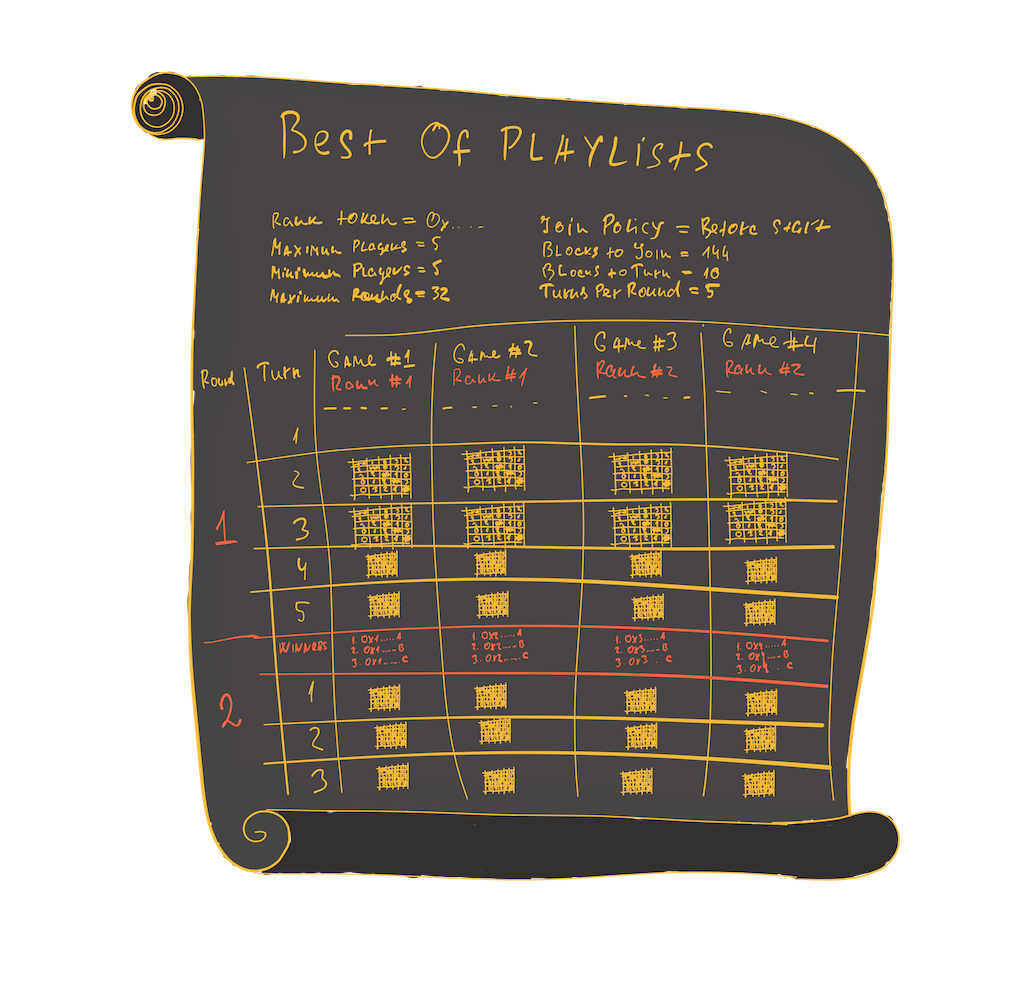 Best Of PLAYLists
Rank token = 0x....
Maximum Players = 5
Minimum Players = 5
Maximum Rounds = 32
Join Policy = Before start
Blocks to Join = 144
Blocks to Turn = 10
Turns Per Round = 5
Round Turn GAme #1 GAme #2 GAme #3 GAme #4
Rank #1 Rank #1 Rank #2 Rank #2
1
2
1
3
4
5
WINNERS
1. 0x1.....A
2. 0x1.....B
3. 0x1.....C
1. 0x2.....A
2. 0x2.....B
3. 0x2.....C
1. 0x3.....A
2. 0x3.....B
3. 0x3 . C
1. 0x4.....A
2. B
3. . C
1
2
2
3